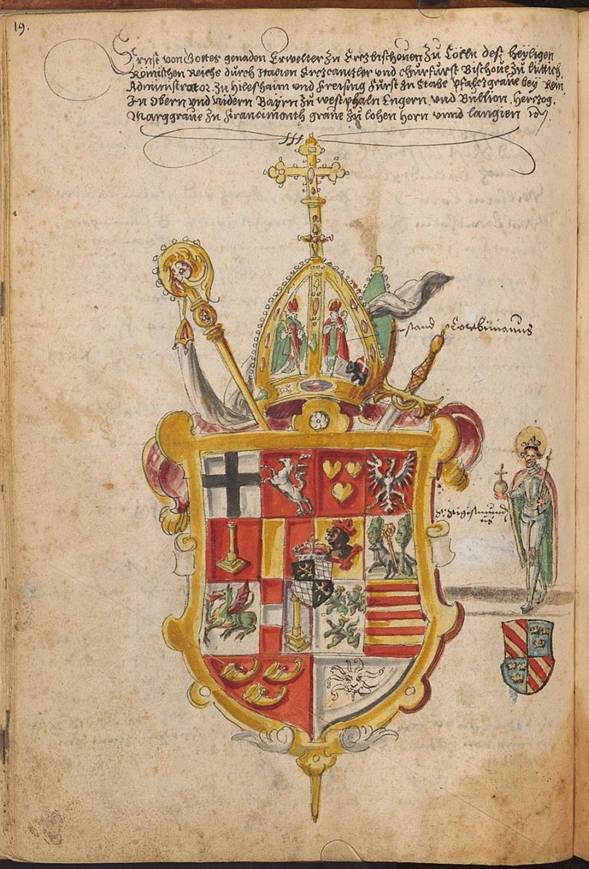 19.
Ernst von Gottes genaden Erwelter Zu Ertzbischouen Zu Cöelln deß heyligen
Römischen Reichs durch Italien Ertzcantzler und churfürst Bischoue Zu lüttich,
Administrator Zu hildeßhaim und Freising Fürst Zu Stabl pfaltzgraue bey Rein
In obern und nidern Bayrn Zu westphaln Engern und Bullion, hertzog,
Marggraue Zu Francimonth graue Zu lohen horn unnd
sand Corbinianus
S. Sigismund
us